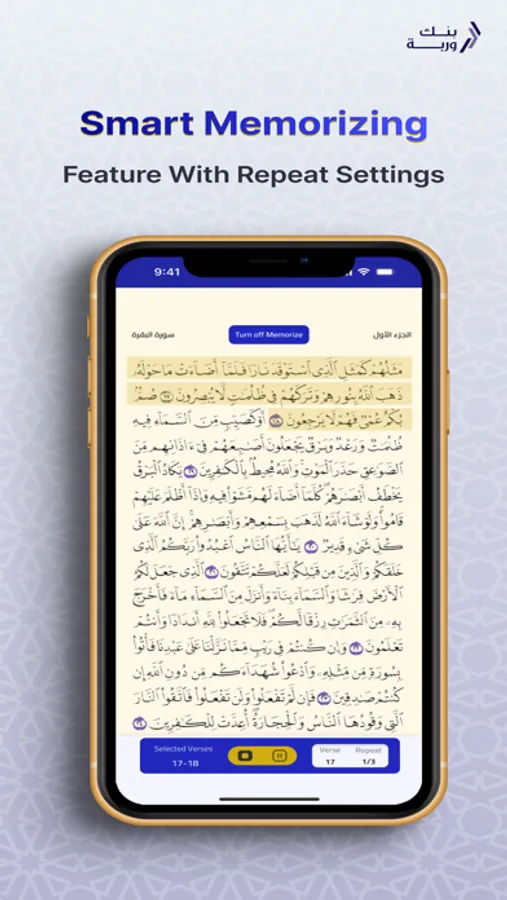 بنـــك
وربـــة
Smart Memorizing
Feature With Repeat Settings
9:41
سورة البقرة Turn off Memorize الجزء الأول
مَثَلُهُمْ كَمَثَلِ ٱلَّذِى ٱسْتَوْقَدَ نَارًا فَلَمَّآ أَضَآءَتْ مَا حَوْلَهُۥ
ذَهَبَ ٱللَّهُ بِنُورِهِمْ وَتَرَكَهُمْ فِى ظُلُمَٰتٍ لَّا يُبْصِرُونَ ١٧ صُمٌّۢ
بُكْمٌ عُمْىٌ فَهُمْ لَا يَرْجِعُونَ ١٨ أَوْ كَصَيِّبٍ مِّنَ ٱلسَّمَآءِ فِيهِ
ظُلُمَٰتٌ وَرَعْدٌ وَبَرْقٌ يَجْعَلُونَ أَصَٰبِعَهُمْ فِىٓ ءَاذَانِهِم مِّنَ
ٱلصَّوَٰعِقِ حَذَرَ ٱلْمَوْتِ وَٱللَّهُ مُحِيطٌۢ بِٱلْكَٰفِرِينَ ١٩ يَكَادُ ٱلْبَرْقُ
يَخْطَفُ أَبْصَٰرَهُمْ كُلَّمَآ أَضَآءَ لَهُم مَّشَوْا۟ فِيهِ وَإِذَآ أَظْلَمَ عَلَيْهِمْ
قَامُوا۟ وَلَوْ شَآءَ ٱللَّهُ لَذَهَبَ بِسَمْعِهِمْ وَأَبْصَٰرِهِمْ إِنَّ ٱللَّهَ عَلَىٰ
كُلِّ شَىْءٍ قَدِيرٌ ٢٠ يَٰٓأَيُّهَا ٱلنَّاسُ ٱعْبُدُوا۟ رَبَّكُمُ ٱلَّذِى
خَلَقَكُمْ وَٱلَّذِينَ مِن قَبْلِكُمْ لَعَلَّكُمْ تَتَّقُونَ ٢١ ٱلَّذِى جَعَلَ لَكُمُ
ٱلْأَرْضَ فِرَٰشًا وَٱلسَّمَآءَ بِنَآءً وَأَنزَلَ مِنَ ٱلسَّمَآءِ مَآءً فَأَخْرَجَ
بِهِۦ مِنَ ٱلثَّمَرَٰتِ رِزْقًا لَّكُمْ فَلَا تَجْعَلُوا۟ لِلَّهِ أَندَادًا وَأَنتُمْ
تَعْلَمُونَ ٢٢ وَإِن كُنتُمْ فِى رَيْبٍ مِّمَّا نَزَّلْنَا عَلَىٰ عَبْدِنَا فَأْتُوا۟
بِسُورَةٍ مِّن مِّثْلِهِۦ وَٱدْعُوا۟ شُهَدَآءَكُم مِّن دُونِ ٱللَّهِ إِن
كُنتُمْ صَٰدِقِينَ ٢٣ فَإِن لَّمْ تَفْعَلُوا۟ وَلَن تَفْعَلُوا۟ فَٱتَّقُوا۟ ٱلنَّارَ
ٱلَّتِى وَقُودُهَا ٱلنَّاسُ وَٱلْحِجَارَةُ أُعِدَّتْ لِلْكَٰفِرِينَ ٢٤
Selected Verses Verse Repeat
17-18 17 1/3